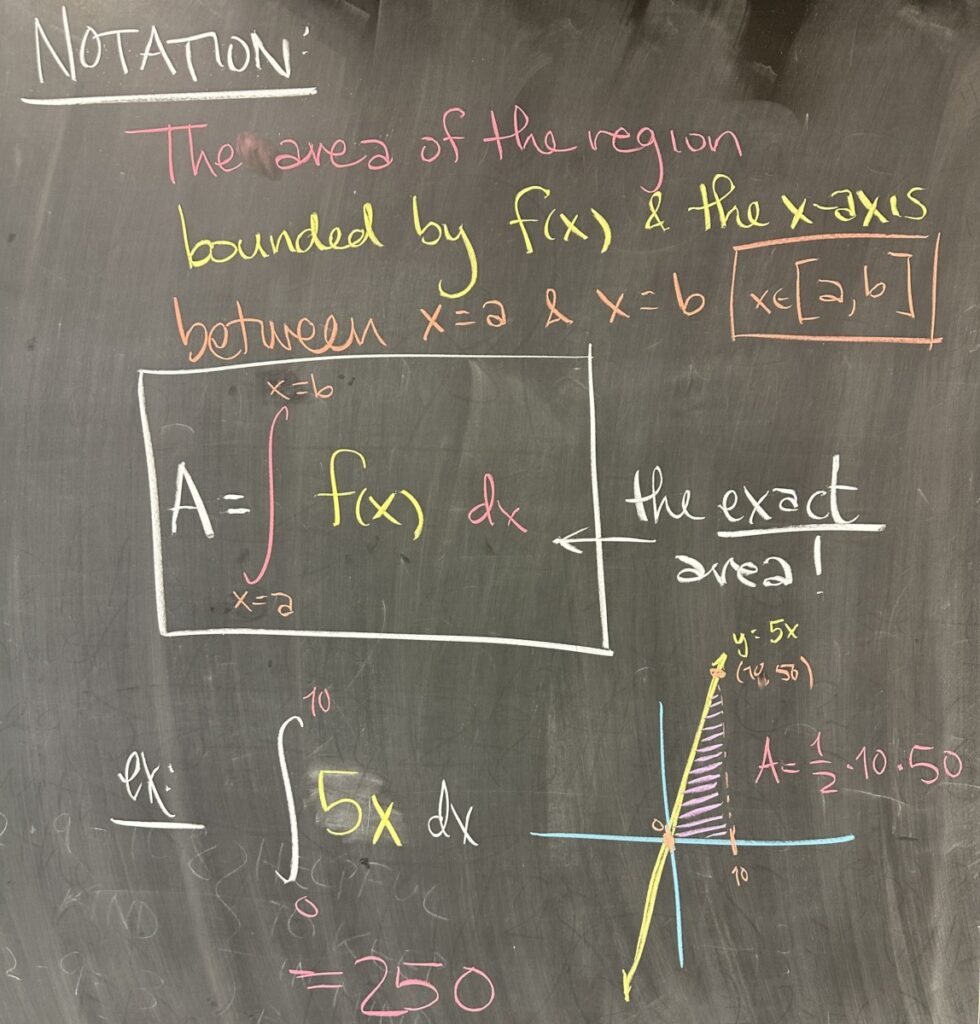 NOTATION:
The area of the region
bounded by f(x) & the x-axis
between x=a & x=b x∈[a,b]
x=b
A=∫ f(x) dx
x=a
the exact
area!
y=5x
(10,50)
A=1/2·10·50
0
10
10
ex: ∫ 5x dx
0
=250